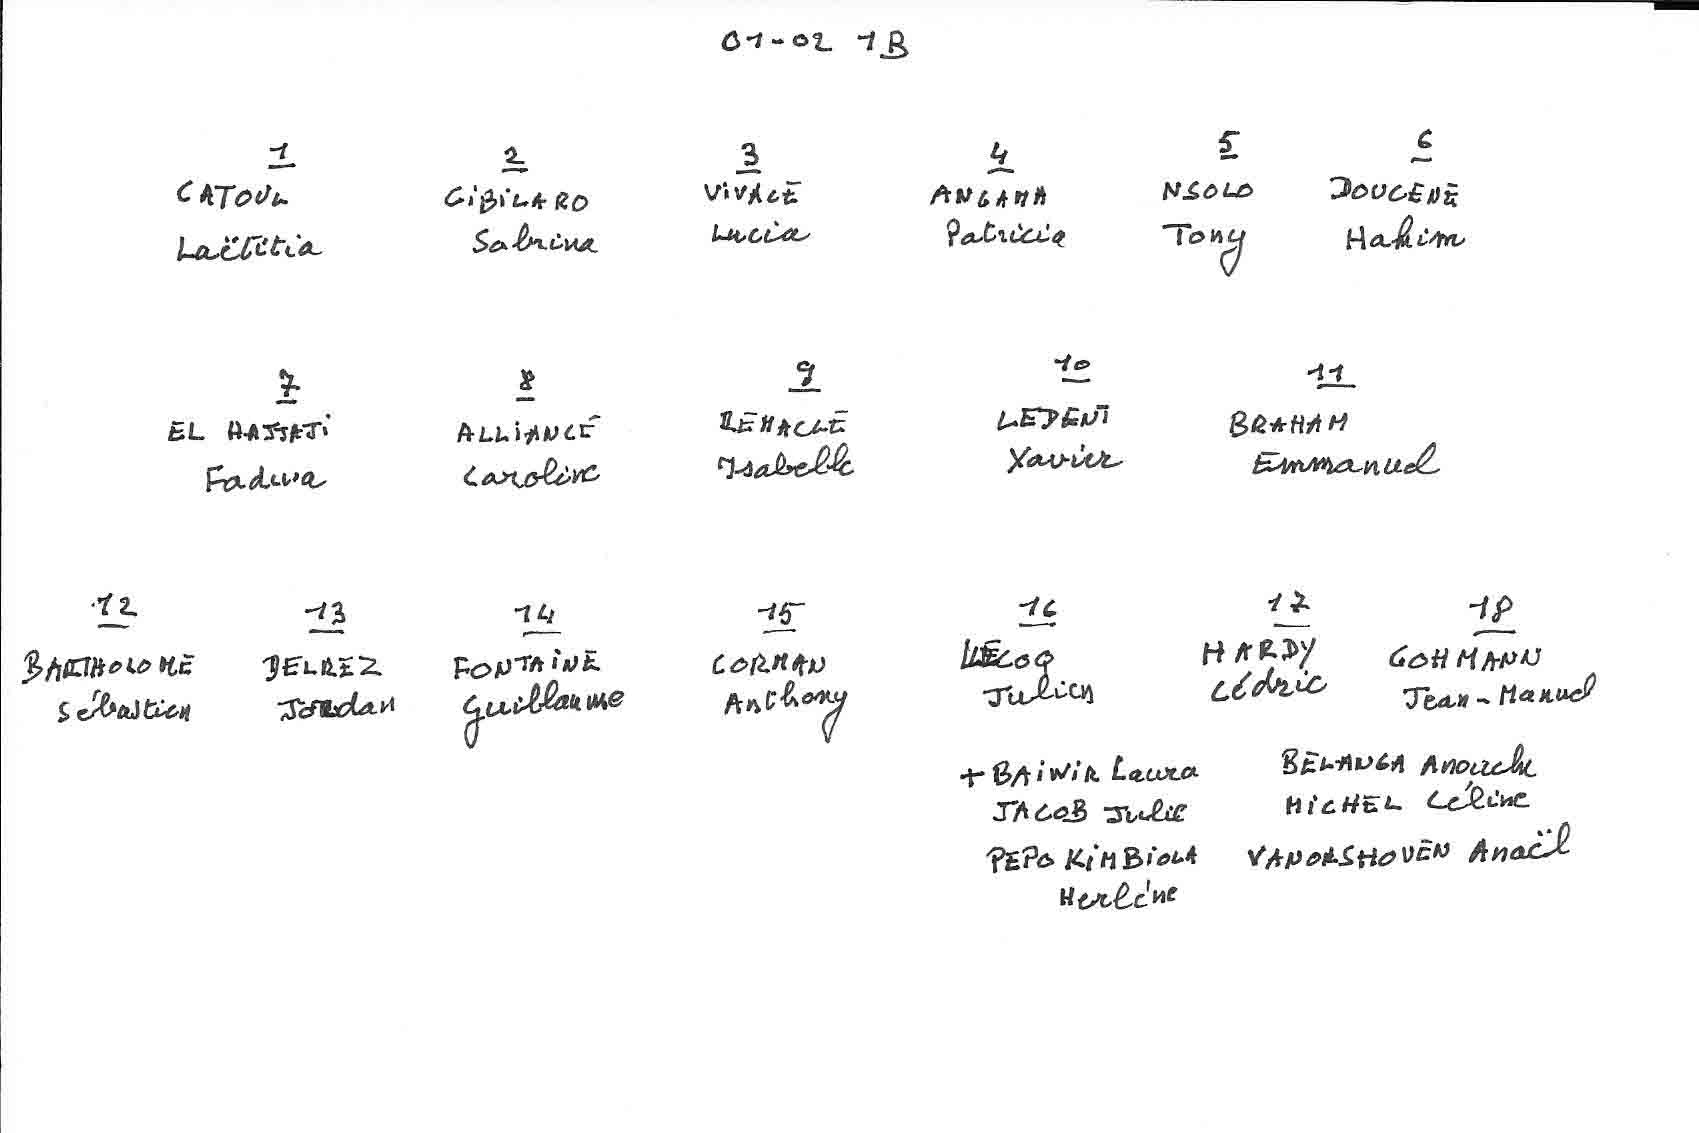 01-02 1B
1 2 3 4 5 6
CATOUL GIBILARO VIVACE ANGAMA NSOLO DOUCENE
Laëtitia Sabrina Lucia Patricia Tony Hakim
7 8 9 10 11
EL HAJJAJI ALLIANCE REMACLE LEDENT BRAHAM
Fadwa Caroline Isabelle Xavier Emmanuel
12 13 14 15 16 17 18
BARTHOLOME DELREZ FONTAINE CORMAN LECOQ HARDY GOHMANN
Sébastien Jordan Guillaume Anthony Julien Cédric Jean-Manuel
+ BAIWIR Laura BELANGA Anouche
JACOB Julie MICHEL Céline
PEPO KIMBIOLA VANORSHOVEN Anaël
Herléne